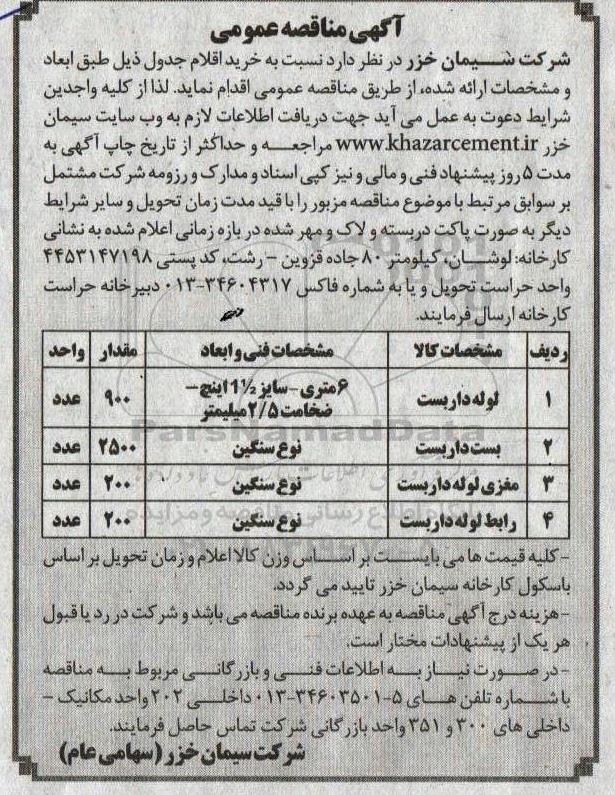 آگهی مناقصه عمومی
شرکت سیمان خزر در نظر دارد نسبت به خرید اقلام جدول ذیل طبق ابعاد
و مشخصات ارائه شده، از طریق مناقصه عمومی اقدام نماید. لذا از کلیه واجدین
شرایط دعوت به عمل می آید جهت دریافت اطلاعات لازم به وب سایت سیمان
خزر www.khazarcement.ir مراجعه و حداکثر از تاریخ چاپ آگهی به
مدت ۵ روز پیشنهاد فنی و مالی و نیز کپی اسناد و مدارک و رزومه شرکت مشتمل
بر سوابق مرتبط با موضوع مناقصه مزبور را با قید مدت زمان تحویل و سایر شرایط
دیگر به صورت پاکت دربسته و لاک و مهر شده در بازه زمانی اعلام شده به نشانی
کارخانه: لوشان، کیلومتر ۸۰ جاده قزوین - رشت، کد پستی ۴۴۵۳۱۴۷۱۹۸
واحد حراست تحویل و یا به شماره فاکس ۳۴۶۰۴۳۱۷-۰۱۳ دبیرخانه حراست
کارخانه ارسال فرمایند.
ردیف مشخصات کالا مشخصات فنی و ابعاد مقدار واحد
۱ لوله داربست ۶ متری - سایز ۱/۲ ۱ اینچ - ضخامت ۲/۵ میلیمتر ۹۰۰ عدد
۲ بست داربست نوع سنگین ۲۵۰۰ عدد
۳ مغزی لوله داربست نوع سنگین ۲۰۰ عدد
۴ رابط لوله داربست نوع سنگین ۲۰۰ عدد
ParsNamadData
- کلیه قیمت ها می بایست بر اساس وزن کالا اعلام و زمان تحویل بر اساس
باسکول کارخانه سیمان خزر تایید می گردد.
- هزینه درج آگهی مناقصه به عهده برنده مناقصه می باشد و شرکت در رد یا قبول
هر یک از پیشنهادات مختار است.
- در صورت نیاز به اطلاعات فنی و بازرگانی مربوط به مناقصه
با شماره تلفن های ۵-۳۴۶۰۳۵۰۱-۰۱۳ داخلی ۲۰۲ واحد مکانیک -
داخلی های ۳۰۰ و ۳۵۱ واحد بازرگانی شرکت تماس حاصل فرمایند.
شرکت سیمان خزر (سهامی عام)